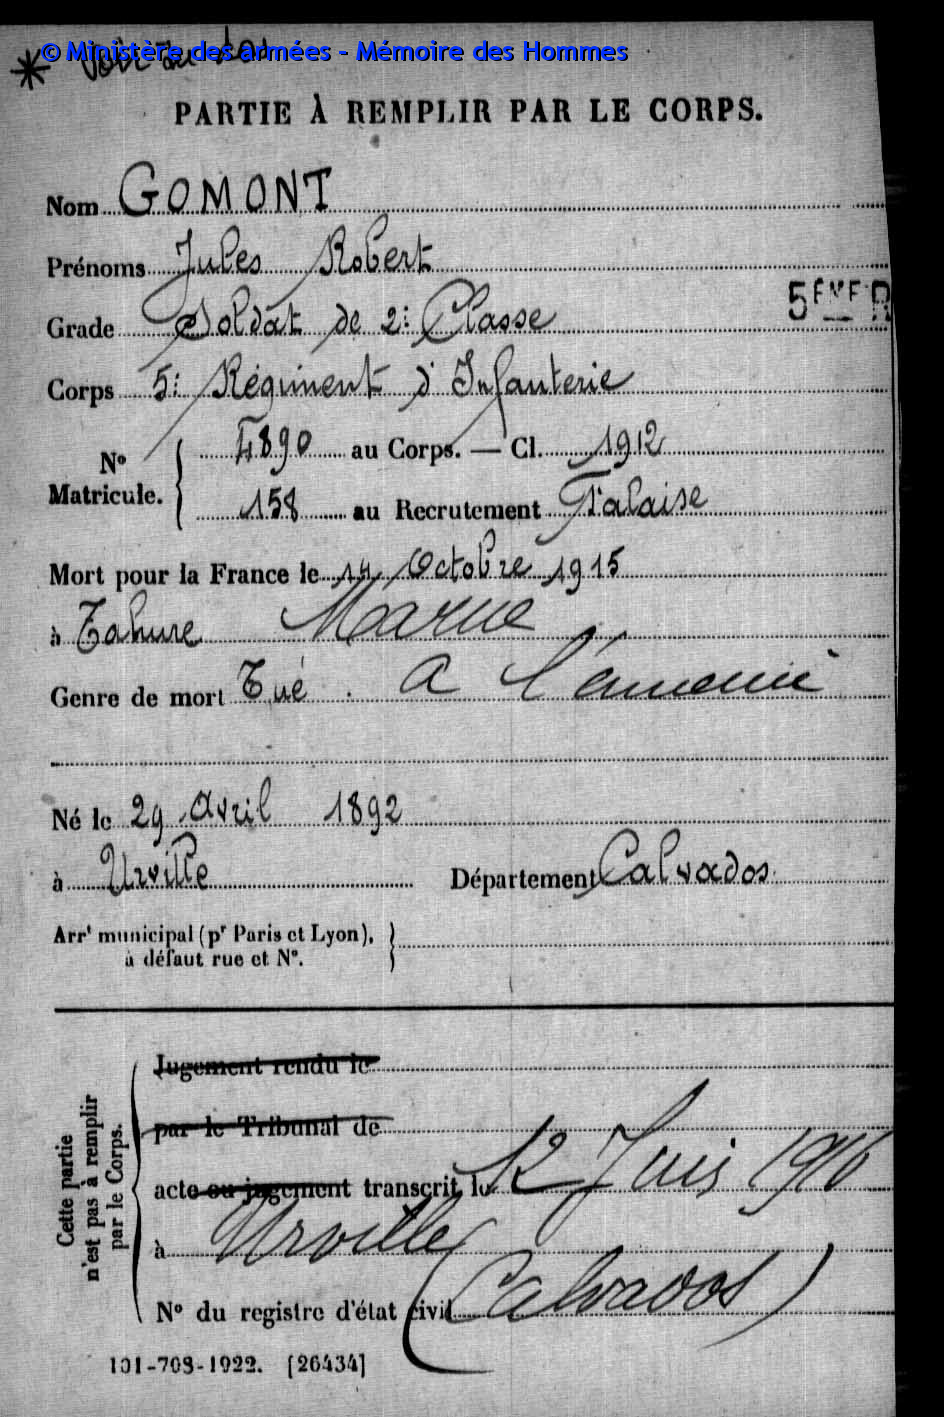 © Ministère des armées - Mémoire des Hommes
* Voir au dos
PARTIE À REMPLIR PAR LE CORPS.
Nom GOMONT
Prénoms Jules Robert
Grade Soldat de 2e Classe
5EME R
Corps 5e Régiment d'Infanterie
No Matricule.
4890 au Corps. — Cl. 1912
158 au Recrutement Falaise
Mort pour la France le 14 Octobre 1915
à Tahure Marne
Genre de mort Tué à l'ennemi
Né le 29 Avril 1892
à Urville Département Calvados
Arrt municipal (pr Paris et Lyon),
à défaut rue et No.
Cette partie
n'est pas à remplir
par le Corps.
Jugement rendu le
par le Tribunal de
acte ou jugement transcrit le 12 Juin 1916
à Urville
No du registre d'état civil (Calvados)
101-708-1922. [26434]